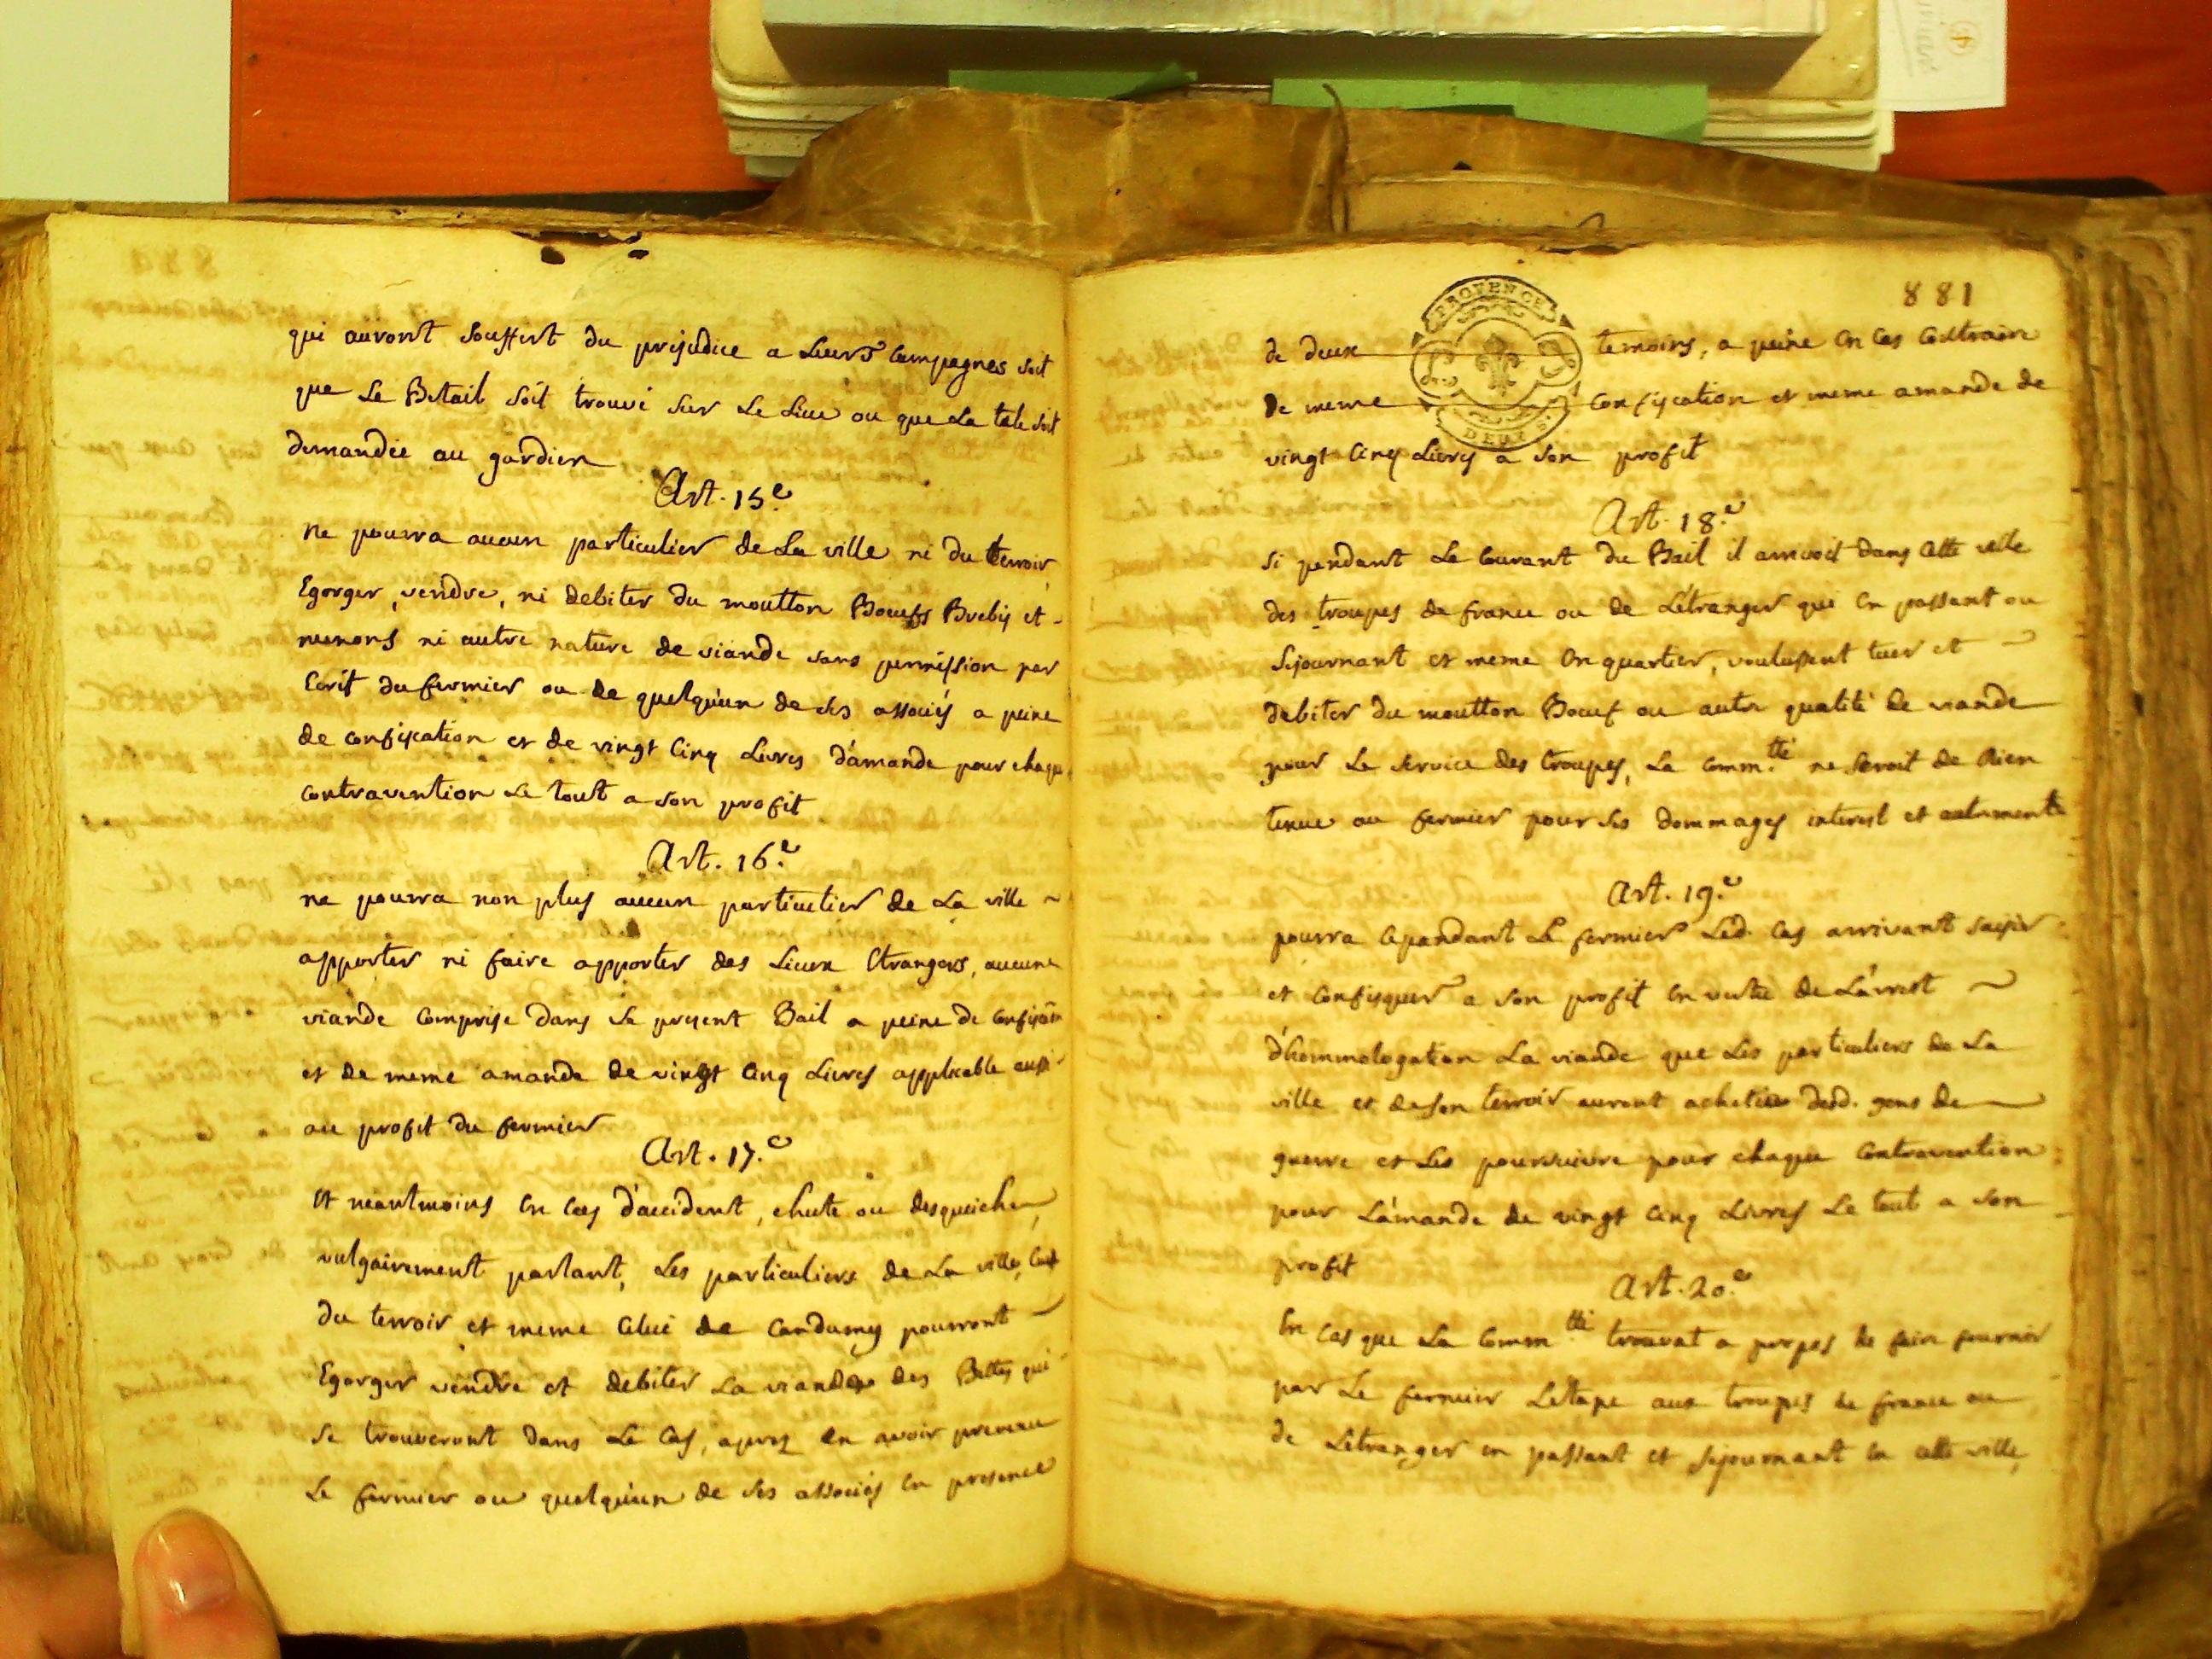 qui auront souffert du prejudice a Leurs Campagnes soit
que Le Betail soit trouvé sur Le Lieu ou que La tale soit
demandée au gardien
Art. 15.e
ne pourra aucun particulier de La ville ni du terroir
Egorger, vendre, ni debiter du moutton Boeufs Brebis et
menons ni autre nature de viande sans permission par
Ecrit du fermier ou de quelqu'un de ses associés a peine
de confiscation et de vingt Cinq Livres d'amande pour chaque
contravention Le tout a son profit
Art. 16.e
ne pourra non plus aucun particulier de La ville
apporter ni faire apporter des Lieux Etrangers, aucune
viande Comprise dans Le present Bail a peine de
et de meme amande de vingt Cinq Livres applicable aussi
au profit du fermier
Art. 17.e
Et neantmoins En Cas d'accident, chute ou desqueiche,
vulgairement parlant, Les particuliers de La ville,
du terroir et meme Celui de Candumy pourront
Egorger vendre et debiter La viande des Bettes qui
se trouveront dans Le Cas, apres en avoir
Le fermier ou quelqu'un de ses associés En presence
881
PROVENCE
DEUX S.
de deux temoins, a peine En Cas Contraire
de meme Confiscation et meme amande de
vingt Cinq Livres a son profit
Art. 18.e
si pendant Le Courant du Bail il arrivoit dans Cette ville
des troupes de france ou de L'étranger qui En passant ou
sejournant et meme En quartier, voulussent tuer et
debiter du moutton Boeuf ou autre qualité de viande
pour Le service des troupes, La Comm.tté ne seroit de Rien
tenue au fermier pour ses dommages interest et autrement
Art. 19.e
pourra Cepandant Le fermier Led. Cas arrivant saisir
et Confisquer a son profit En vertu de L'arrest
d'hommologation La viande que Les particuliers de La
ville et de son terroir auront achetée desd. gens de
guerre et Les poursuivre pour chaque Contravention
pour L'amande de vingt Cinq Livres Le tout a son
profit
Art. 20.e
En Cas que La Comm.tté trouvat a propos de faire fournir
par Le fermier L'etape aux troupes de france ou
de L'etranger en passant et sejournant En cette ville,